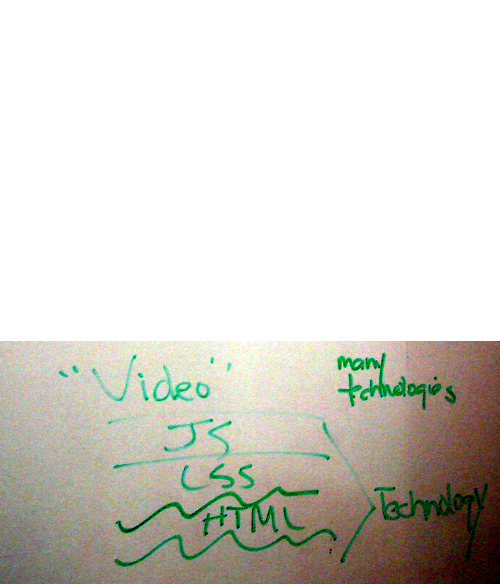 "Video"
many
technologies
JS
CSS
HTML
Technology